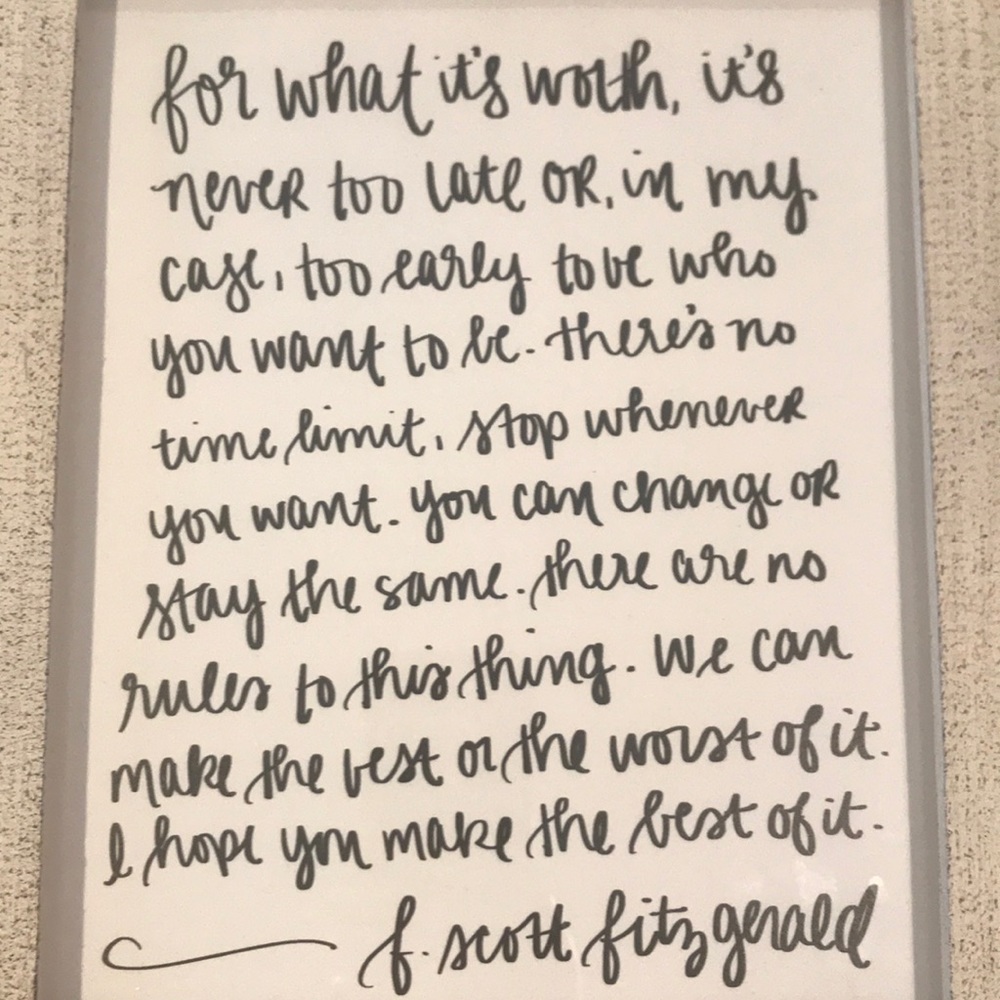 for what it's worth, it's
never too late or, in my
case, too early to be who
you want to be. there's no
time limit. stop whenever
you want. you can change or
stay the same. there are no
rules to this thing. We can
make the best or the worst of it.
I hope you make the best of it.
f. scott fitzgerald